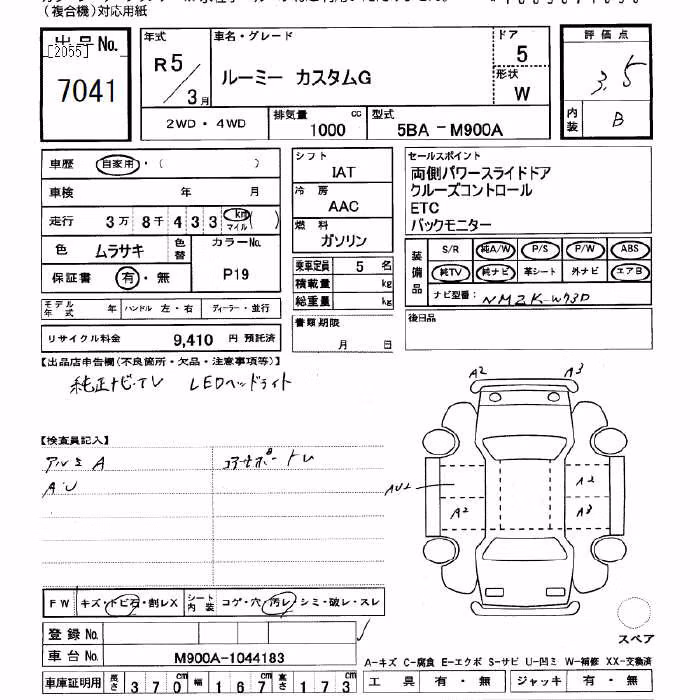 （複合機）対応用紙
出品No.
[2055]
7041
年式
R5
/3月
車名・グレード
ルーミー カスタムG
ドア
5
形状
W
評価点
3.5
内装
B
2WD・4WD
排気量 cc
1000
型式
5BA－M900A
車歴 自家用・（ ）
車検 年 月
走行 3万 8千 4 3 3 km マイル ( )
色 ムラサキ 色替
カラーNo.
P19
保証書 有・無
シフト
IAT
冷房
AAC
燃料
ガソリン
乗車定員 5 名
積載量 kg
総重量 kg
書類期限
月 日
セールスポイント
両側パワースライドドア
クルーズコントロール
ETC
バックモニター
装備品
S/R 純A/W P/S P/W ABS
純TV 純ナビ 革シート 外ナビ エアB
ナビ型番: NMZK-W73D
後日品
モデル年式 年 ハンドル 左・右 ディーラー・並行
リサイクル料金 9,410 円 預託済
【出品店申告欄（不良箇所・欠品・注意事項等）】
純正ナビ・TV LEDヘッドライト
【検査員記入】
アルミA コアサポートU
A・U
A2 A3
AU1 A2
A2 A3
FW キズ・トビ石・割レX シート内装 コゲ・穴・汚レ・シミ・破レ・スレ
登録No.
車台No. M900A-1044183
スペア
A-キズ C-腐食 E-エクボ S-サビ U-凹ミ W-補修 XX-交換済
車庫証明用 長さ 370cm 幅 167cm 高さ 173cm
工具 有・無 ジャッキ 有・無